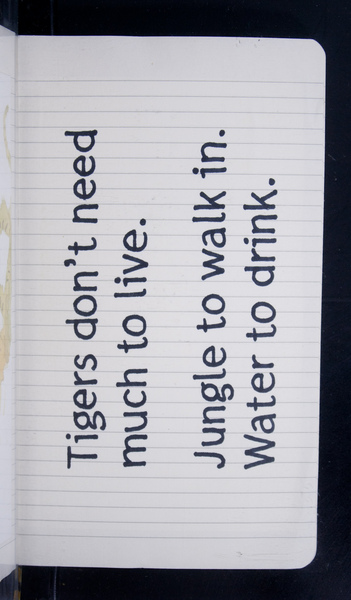 Tigers don't need
much to live.
Jungle to walk in.
Water to drink.